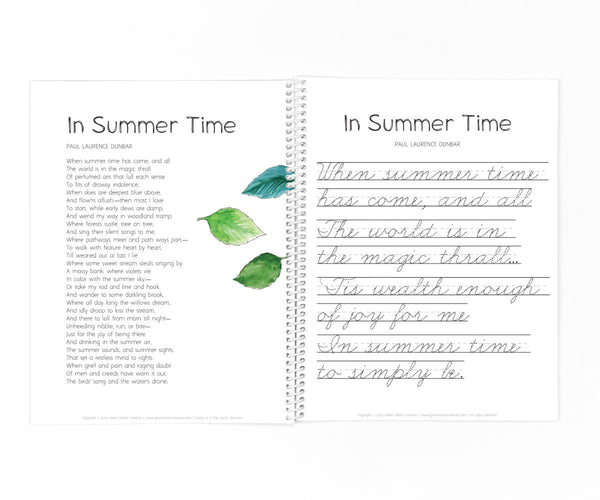 In Summer Time
PAUL LAURENCE DUNBAR
When summer time has come, and all
The world is in the magic thrall
Of perfumed airs that lull each sense
To fits of drowsy indolence;
When skies are deepest blue above,
And flow'rs aflush—then most I love
To start, while early dews are damp,
And wend my way in woodland tramp
Where forests rustle, tree on tree,
And sing their silent songs to me;
Where pathways meet and path ways part—
To walk with Nature heart by heart,
Till wearied out at last I lie
Where some sweet stream steals singing by
A mossy bank; where violets vie
In color with the summer sky,—
Or take my rod and line and hook,
And wander to some darkling brook,
Where all day long the willows dream,
And idly droop to kiss the stream,
And there to loll from morn till night—
Unheeding nibble, run, or bite—
Just for the joy of being there
And drinking in the summer air,
The summer sounds, and summer sights,
That set a restless mind to rights
When grief and pain and raging doubt
Of men and creeds have worn it out;
The birds' song and the water's drone,
In Summer Time
PAUL LAURENCE DUNBAR
When summer time
has come, and all
The world is in
the magic thrall...
'Tis wealth enough
of joy for me
In summer time
to simply be.